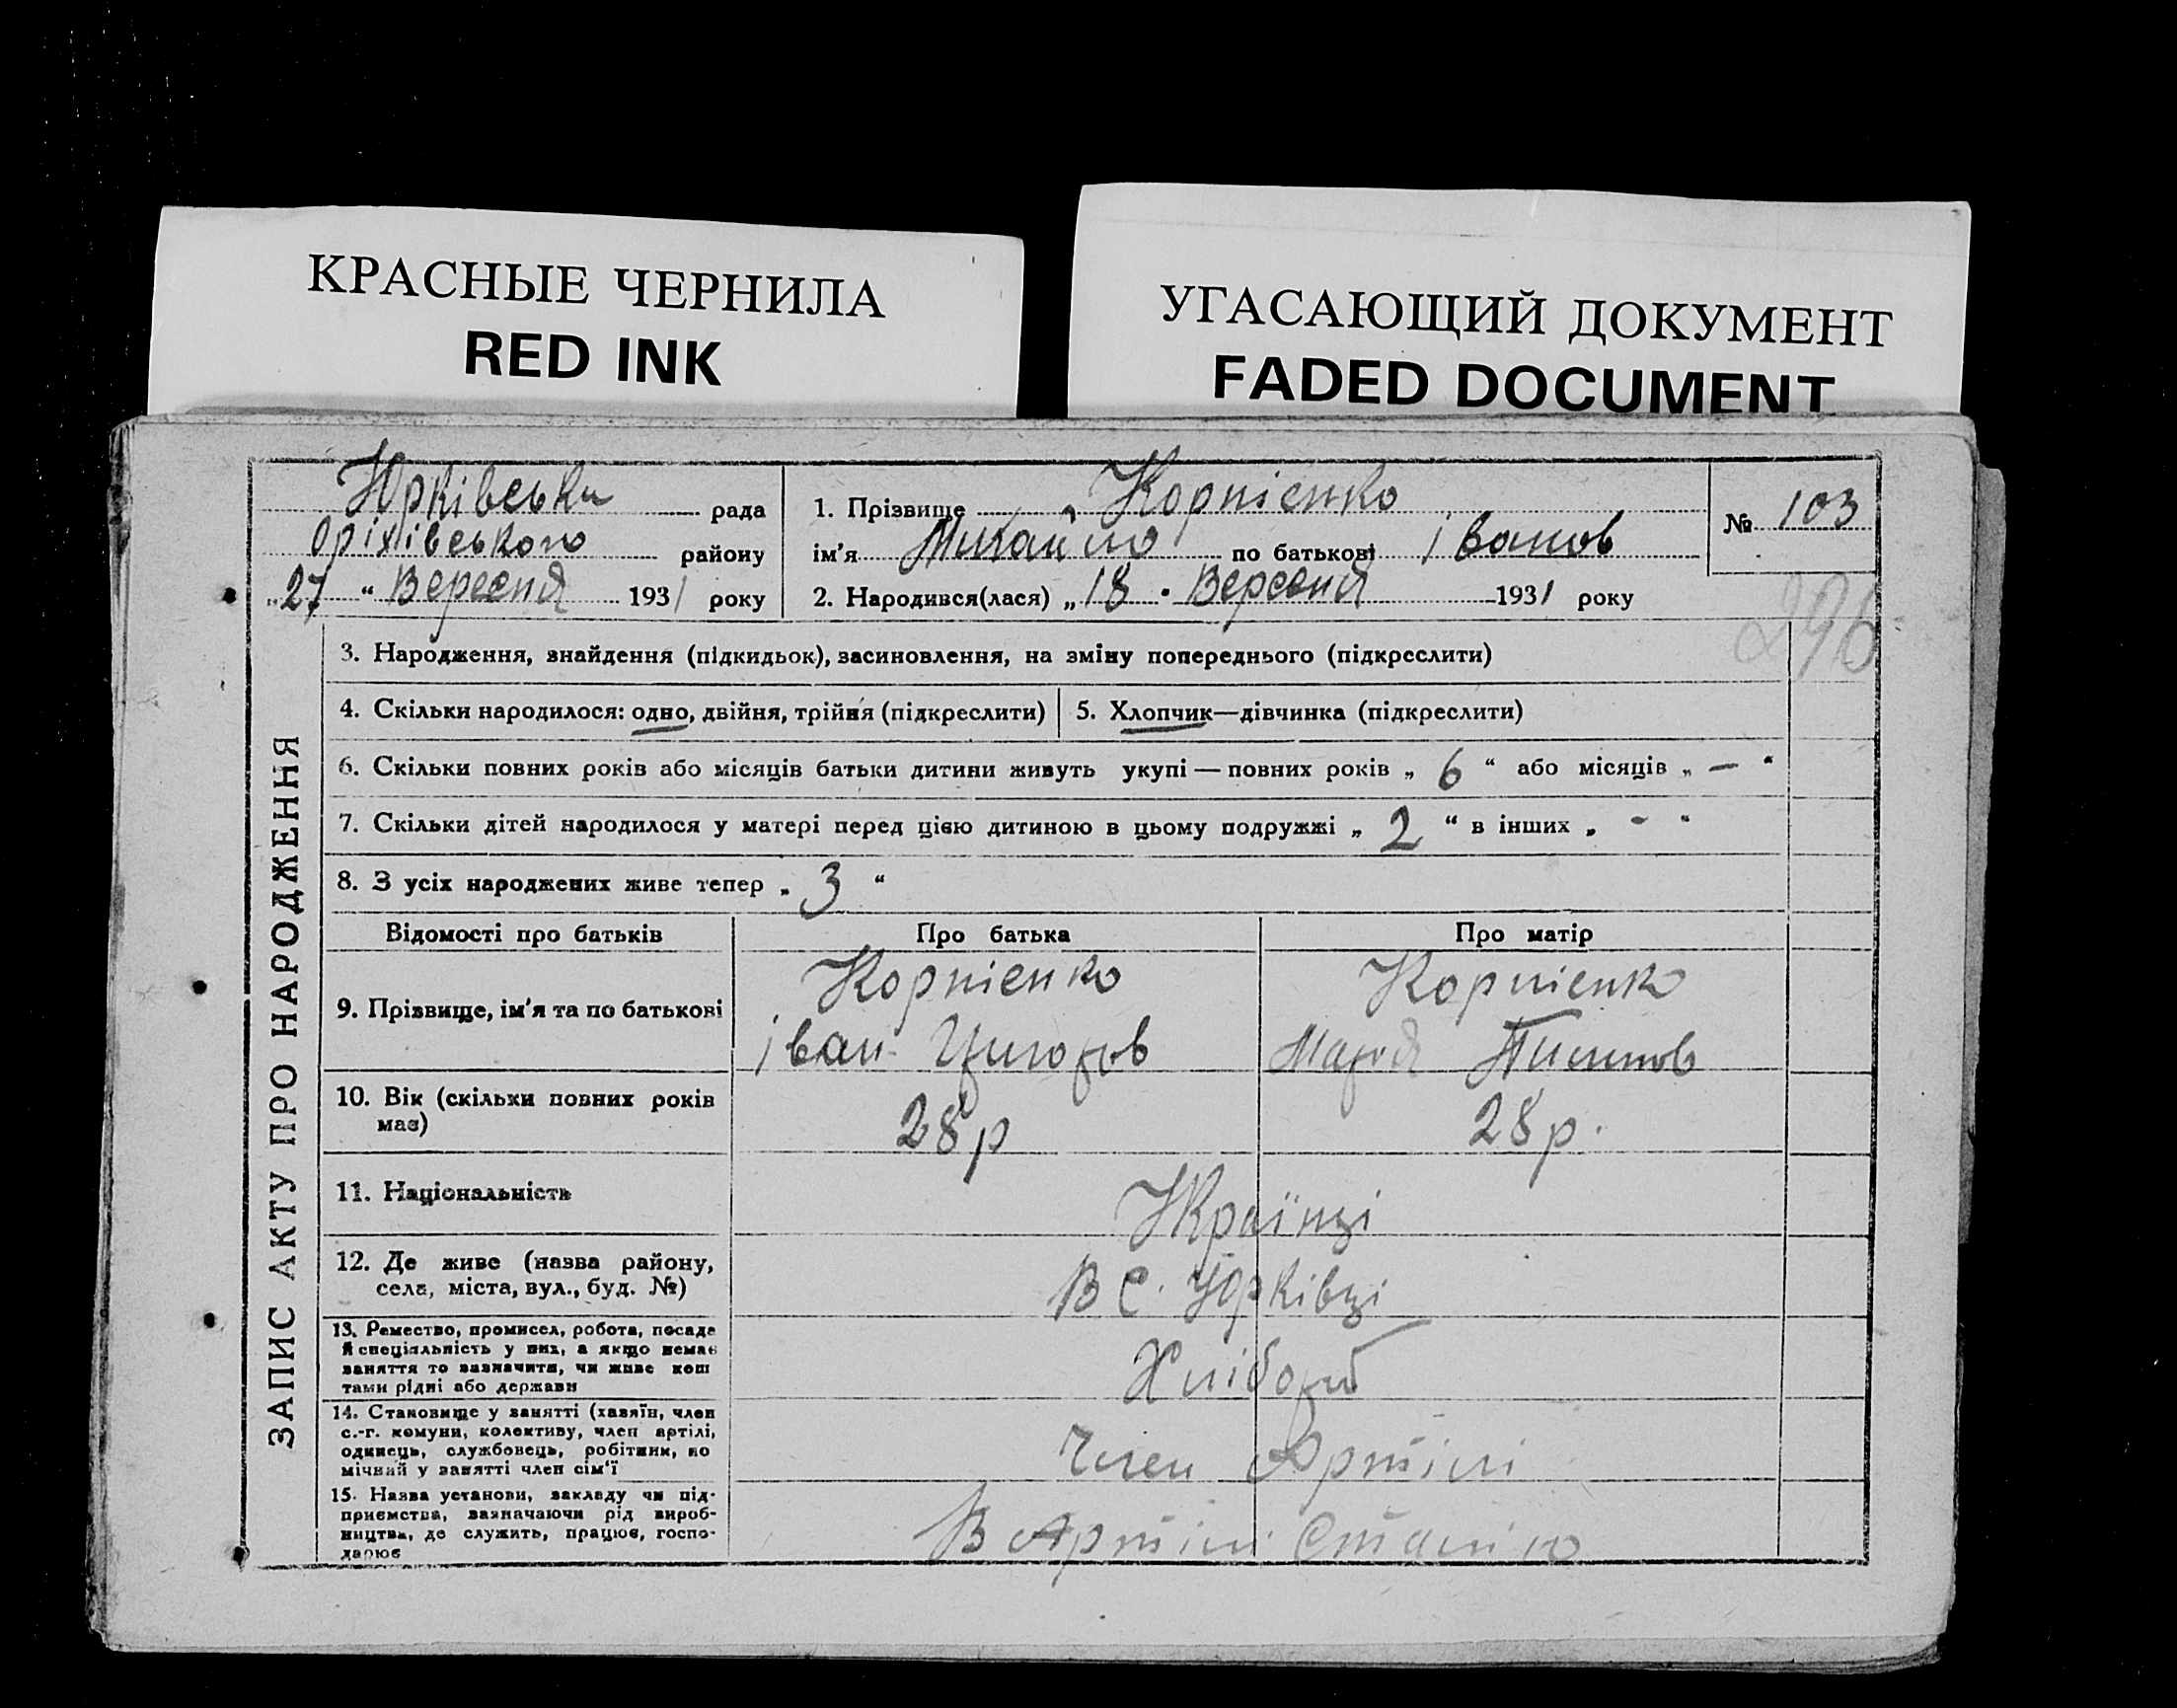 КРАСНЫЕ ЧЕРНИЛА
RED INK
УГАСАЮЩИЙ ДОКУМЕНТ
FADED DOCUMENT
Юрківська рада
Оріхівського району
„27“ Вересня 1931 року
1. Прізвище Корнієнко
ім’я Михайло по батькові Іванов
2. Народився(лася) „18 Вересня 1931 року
№ 103
296
ЗАПИС АКТУ ПРО НАРОДЖЕННЯ
3. Народження, знайдення (підкидьок), засиновлення, на зміну попереднього (підкреслити)
4. Скільки народилося: одно, двійня, трійня (підкреслити) 5. Хлопчик—дівчинка (підкреслити)
6. Скільки повних років або місяців батьки дитини живуть укупі — повних років „ 6 “ або місяців „ — “
7. Скільки дітей народилося у матері перед цією дитиною в цьому подружжі „ 2 “ в інших „ - “
8. З усіх народжених живе тепер „ 3 “
Відомості про батьків Про батька Про матір
9. Прізвище, ім’я та по батькові
Корнієнко
Іван Григоров
Корнієнко
Марія Пилипов
10. Вік (скільки повних років
має)
28 р
28 р.
11. Національність
Українці
12. Де живе (назва району,
села, міста, вул., буд. №)
В с. Юрківці
13. Ремество, промисел, робота, посада
й спеціяльність у них, а якщо немає
заняття то зазначити, чи живе кош
тами рідні або держави
Хлібороб
14. Становище у занятті (хазяїн, член
с.-г. комуни, колективу, член артілі,
одинець, службовець, робітник, по
мічний у занятті член сім’ї
Член Артілі
15. Назва установи, закладу чи під-
приємства, зазначаючи рід вироб-
ництва, де служить, працює, госпо-
дарює
В Артілі